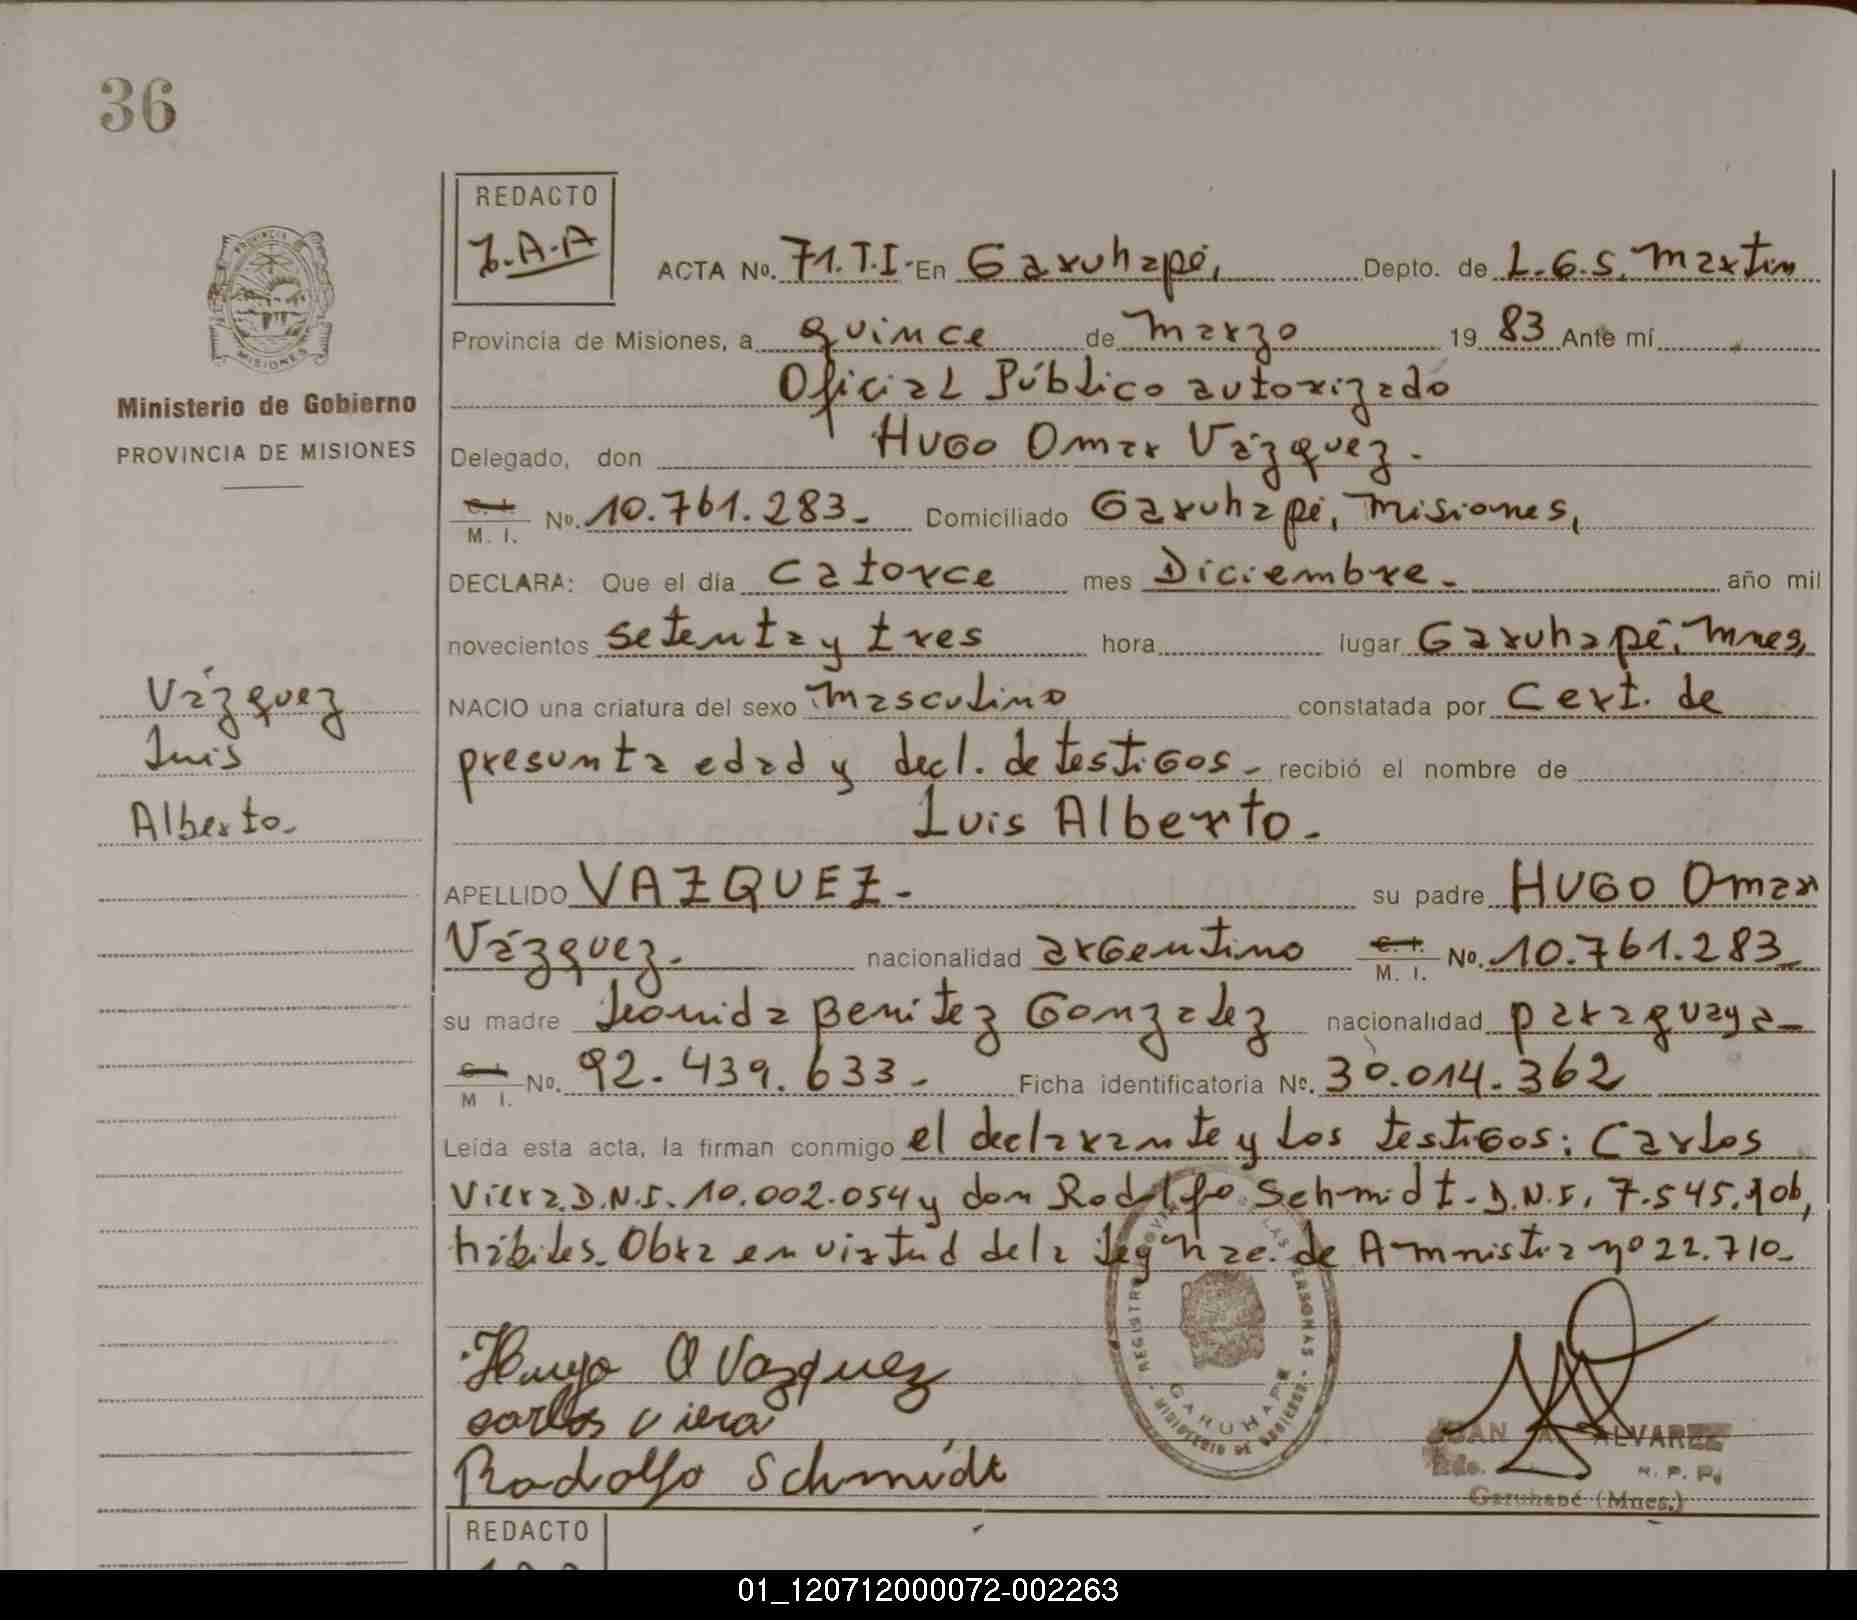 36
REDACTO
J.A.A
ACTA No. 71.T.I. En Garuhapé, Depto. de L.G.S. Martin
Provincia de Misiones, a quince de Marzo 19 83 Ante mí
Oficial Público autorizado
Ministerio de Gobierno
PROVINCIA DE MISIONES
Delegado, don HUGO Omar Vázquez.
C. I.
M. I. No. 10.761.283_ Domiciliado Garuhapé, Misiones,
DECLARA: Que el día catorce mes Diciembre. año mil
novecientos setenta y tres hora lugar Garuhapé, Mnes,
NACIO una criatura del sexo masculino constatada por Cert. de
presunta edad y decl. de testigos_ recibió el nombre de
Luis Alberto.
Vázquez
Luis
Alberto.
APELLIDO VAZQUEZ- su padre HUGO Omar
Vázquez. nacionalidad argentino C. I.
M. I. No. 10.761.283_
su madre Leonida Benitez Gonzalez nacionalidad paraguaya_
C. I.
M I. No. 92.439.633_ Ficha identificatoria No. 30.014.362
Leída esta acta, la firman conmigo el declarante y los testigos: Carlos
Viera. D.N.I. 10.002.054 y don Rodolfo Schmidt. D.N.I. 7.545.106,
hábiles. Obra en virtud de la Ley Nac. de Amnistia nº 22.710_
Hugo O Vazquez
carlos viera
Rodolfo Schmidt
REGISTRO PROVINCIAL DE LAS PERSONAS
GARUHAPE
MINISTERIO DE GOBIERNO
JUAN A. ALVAREZ
R. P. P.
Garuhapé (Mnes.)
REDACTO
01_120712000072-002263